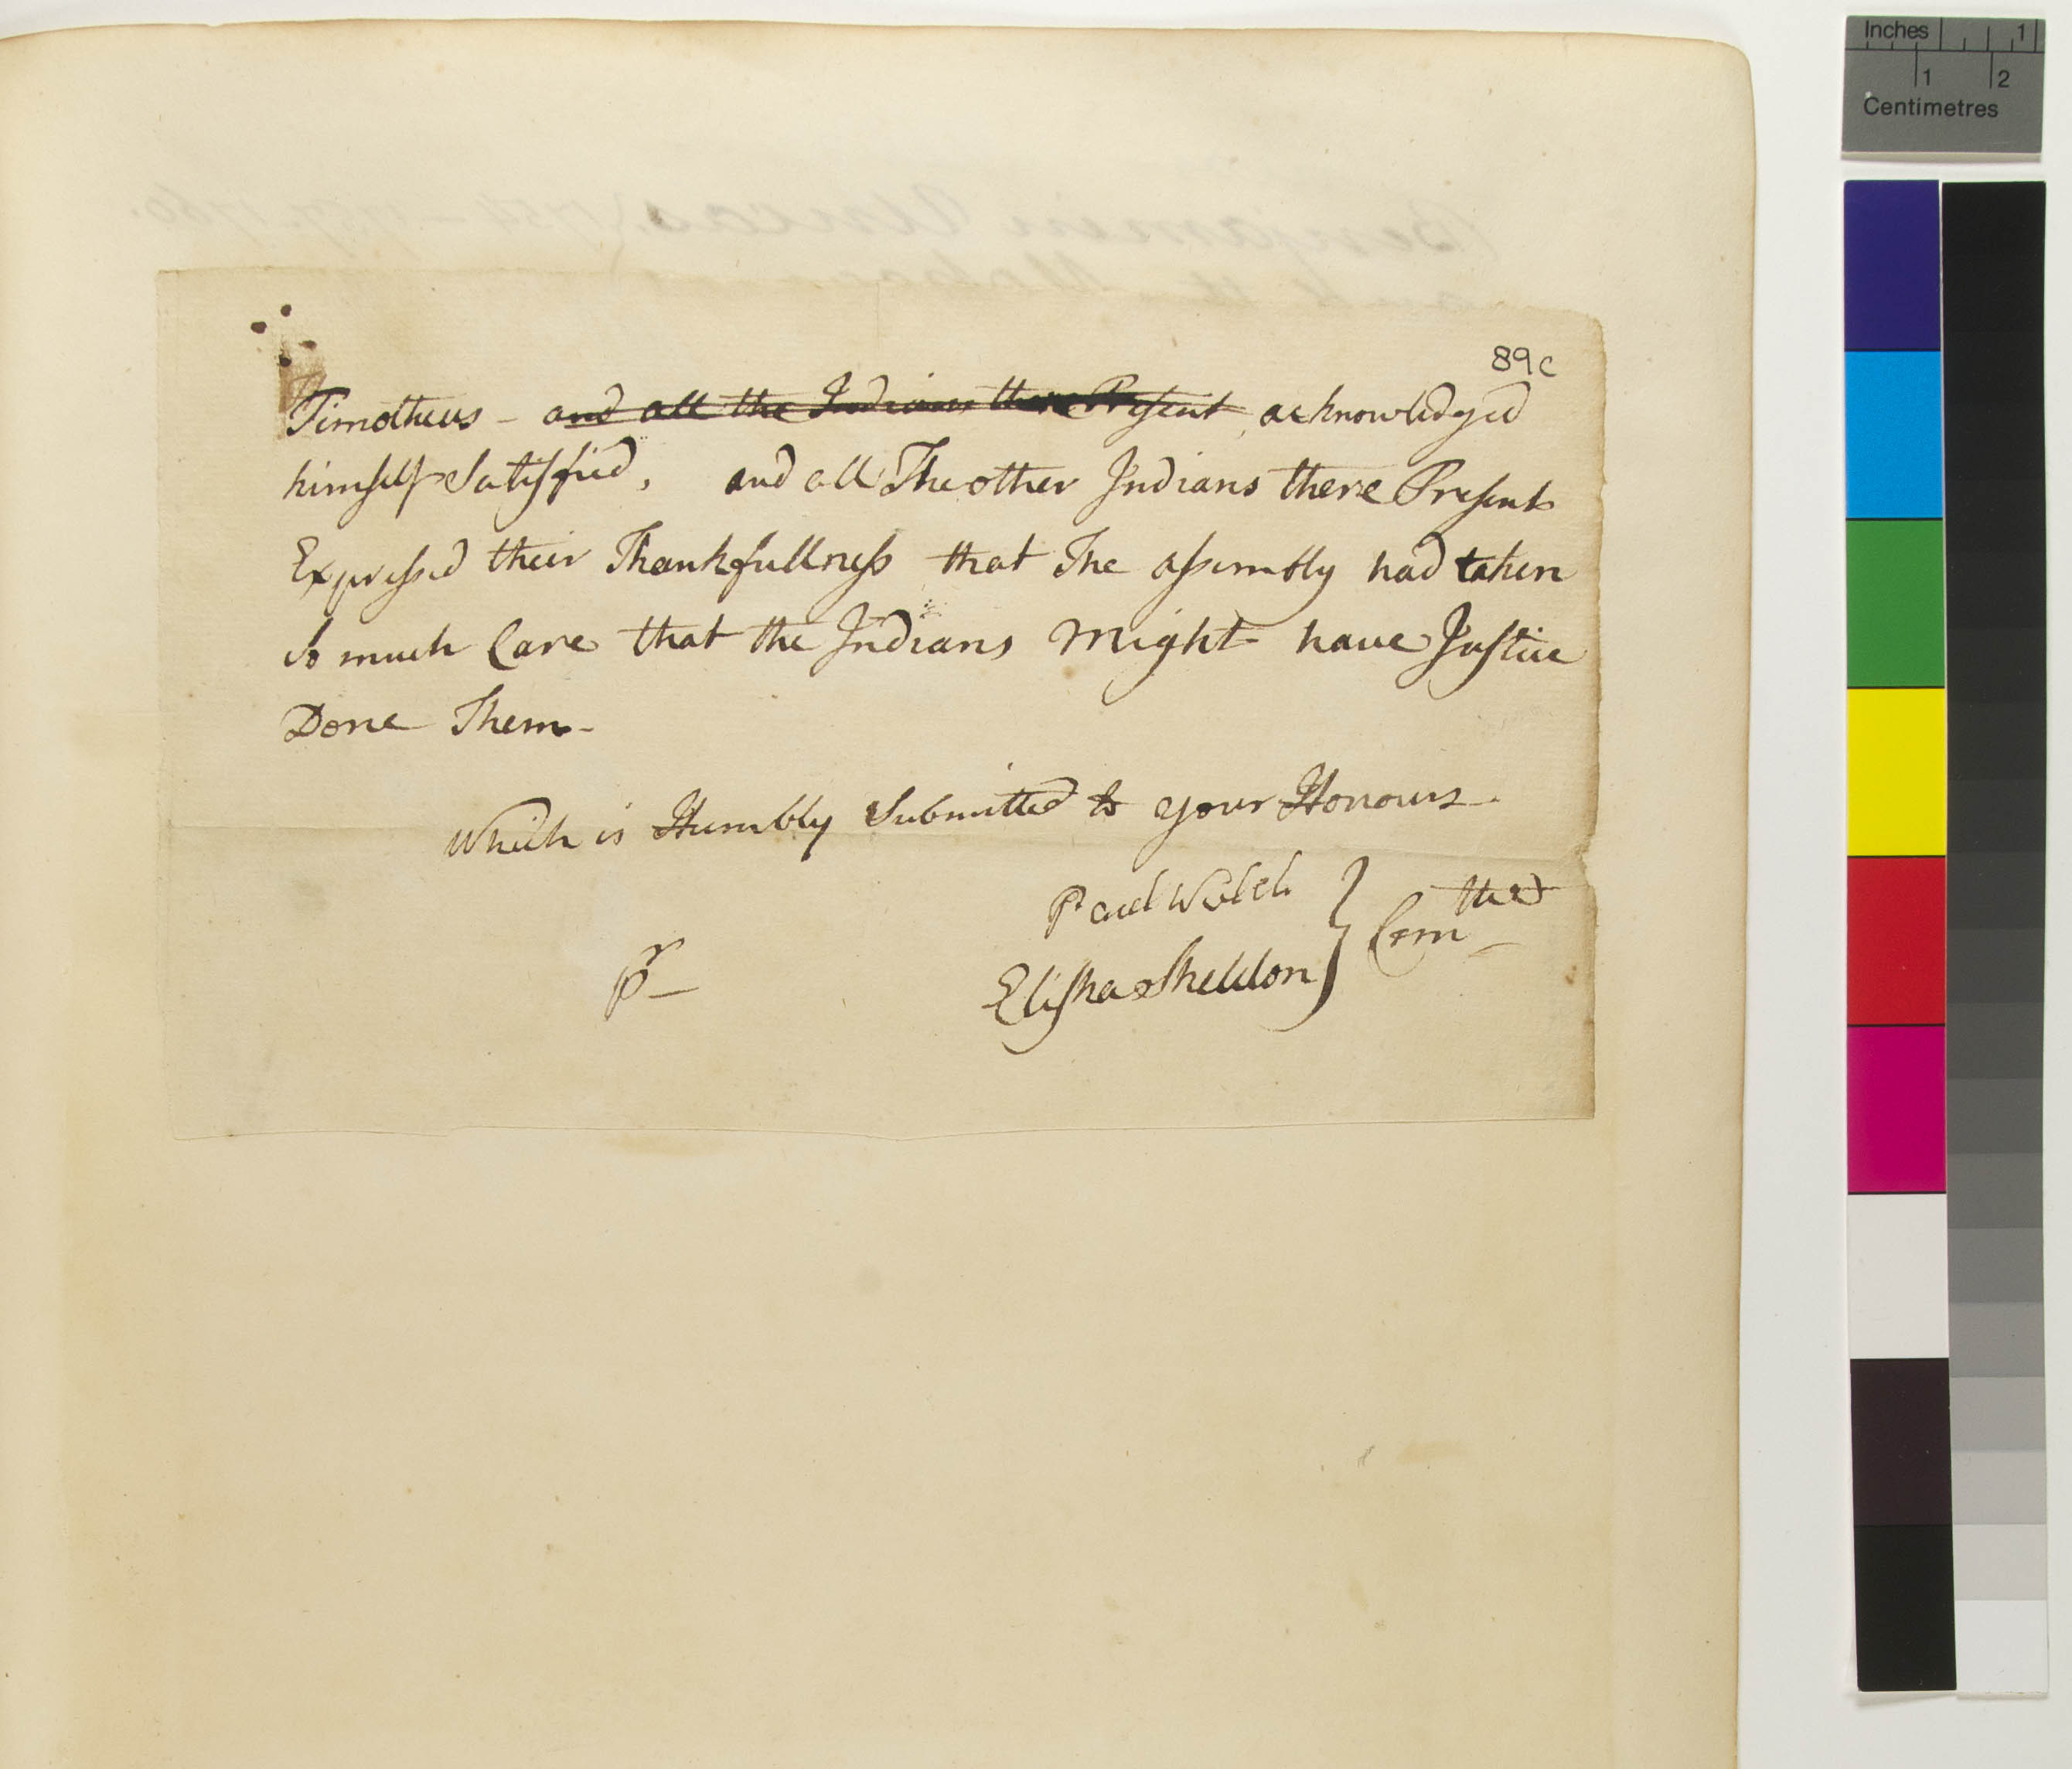 89c
Timotheus - and all the Indians there Present acknowledged
himself Satisfied, and all The other Indians there Present
Expressed their Thankfullness that The assembly had taken
So much Care that the Indians Might have Justice
Done Them-
Which is Humbly Submitted to your Honours-
Elisha Sheldon } Com
pr
Inches 1
1 2
Centimetres